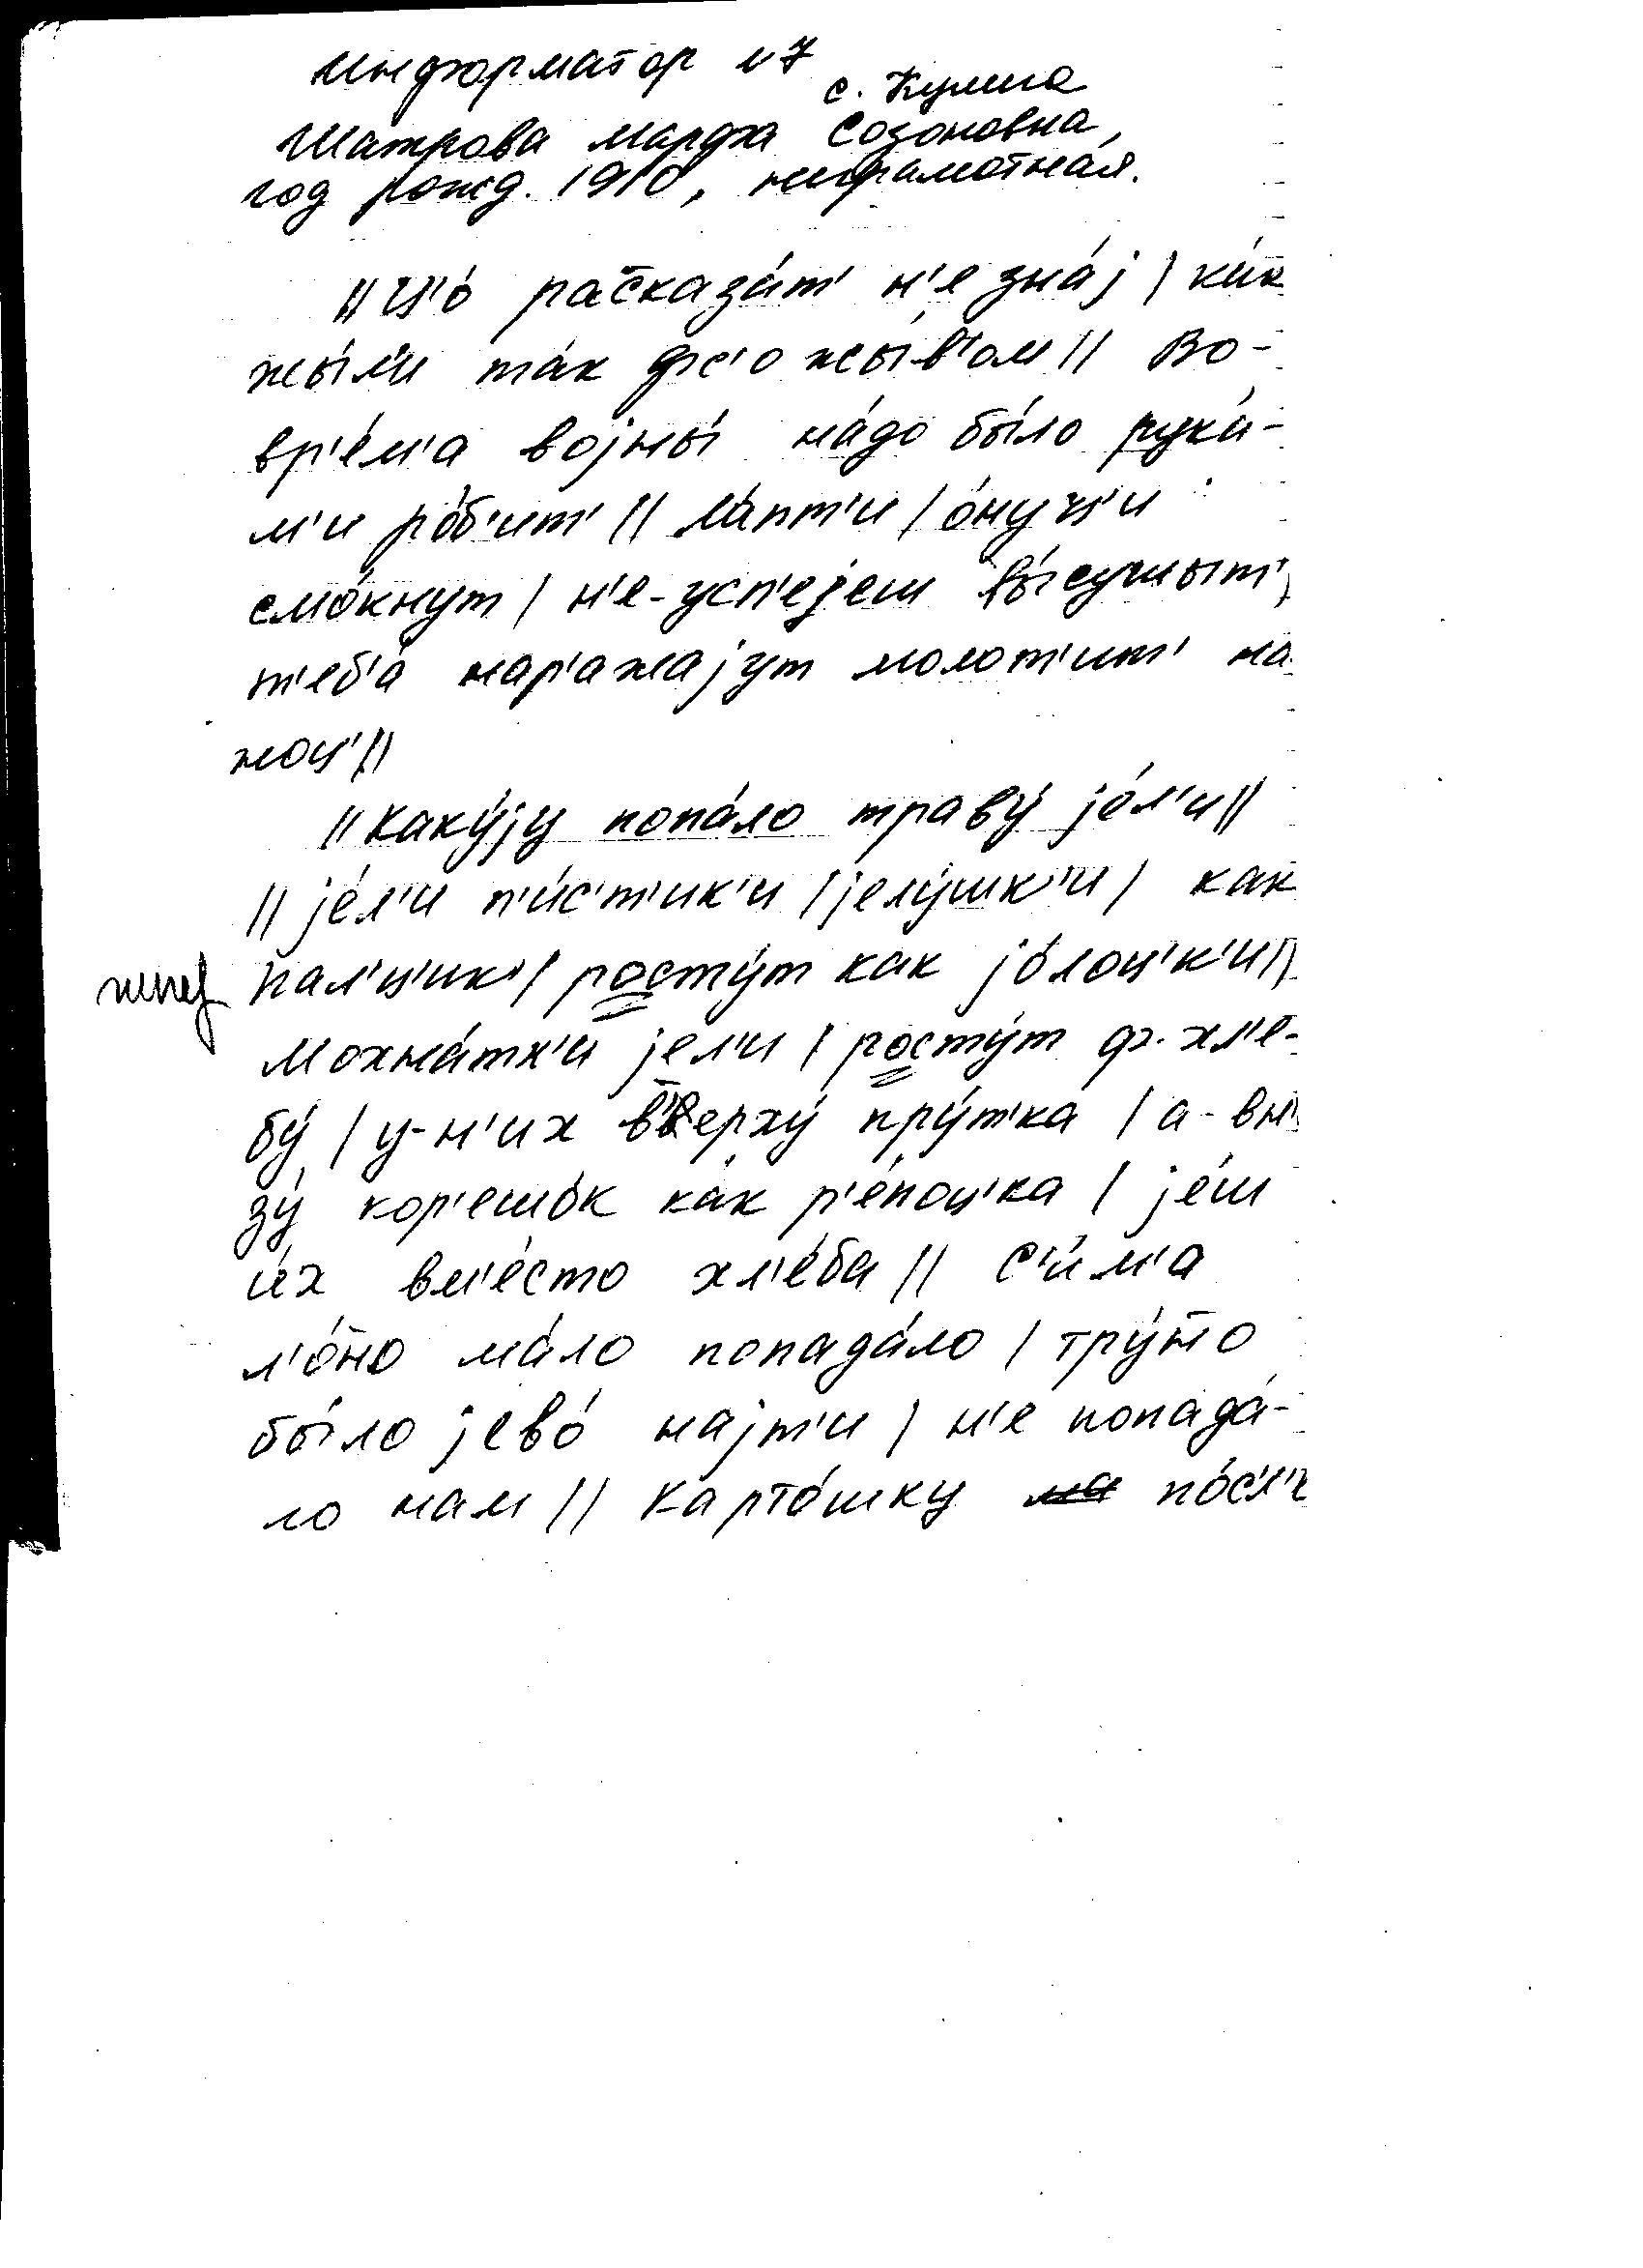 Информатор N 7
с. Кулига
Шатрова Марфа Созоновна,
год рожд. 1910, неграмотная.
|| Ц'о́ рас̄каза́т' н'е зна́j | ка́к
жы́л'и та́к фс'о жыв'о́м || Во-
вр'е́м'а воjны́ на́до бы́ло рука́-
м'и ро́б'ит' || ла́пт'и | о́нуч'и
смо́кнут | н'е-усп'еjеш вы́сушыт'
т'еб'а́ нар'ажаjут молот'ит' на
ноц' ||
|| каку́jу попа́ло траву́ jе́л'и ||
|| jе́л'и п'и́с'т'ик'и | jелу́шк'и | как
пал'ц'ик' | росту́т как jо́лоц'к'и ||
Мохна́тк'и jел'и | росту́т ф-хл'е-
бу́ | у-н'их в̄'ерху́ пру́тка | а-вн'и
зу́ кор'ешо́к ка́к р'е́поц'ка | jе́ш
и́х вм'е́сто хл'е́ба || С'и́м'а
л'о́н̄о ма́ло попада́ло | тру́н̄о
бы́ло jево́ наjт'и | н'е попада́-
ло нам || Карто́шку по́сл'е